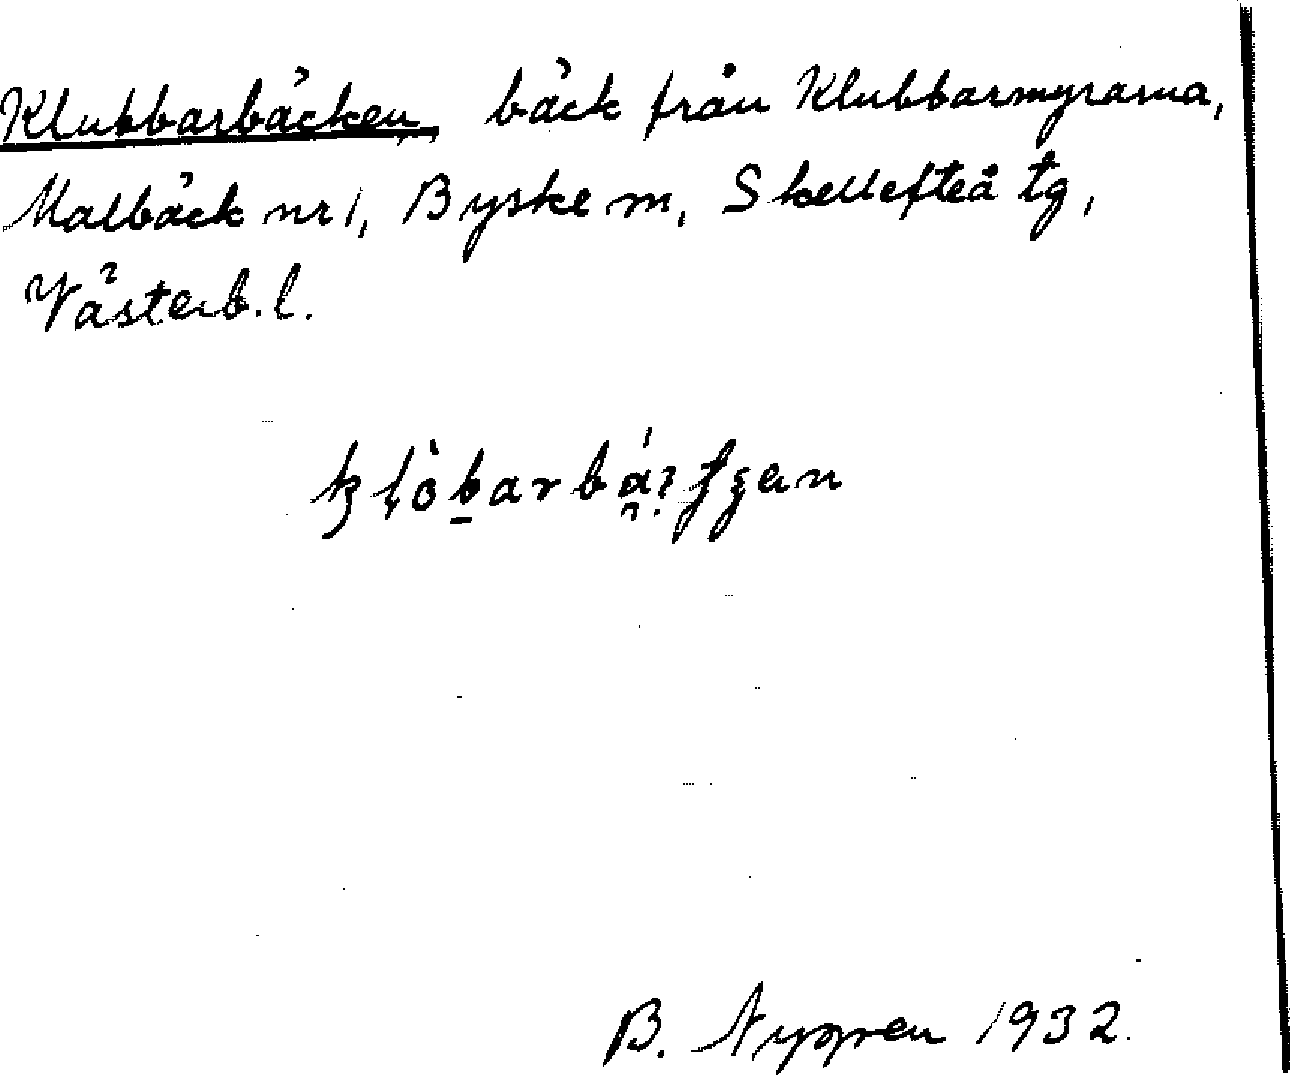 Klubbarbäcken, bäck från Klubbarmyrarna,
Malbäck nr 1, Byske m, Skellefteå tg,
Västerb. l.
B. Nygren 1932.